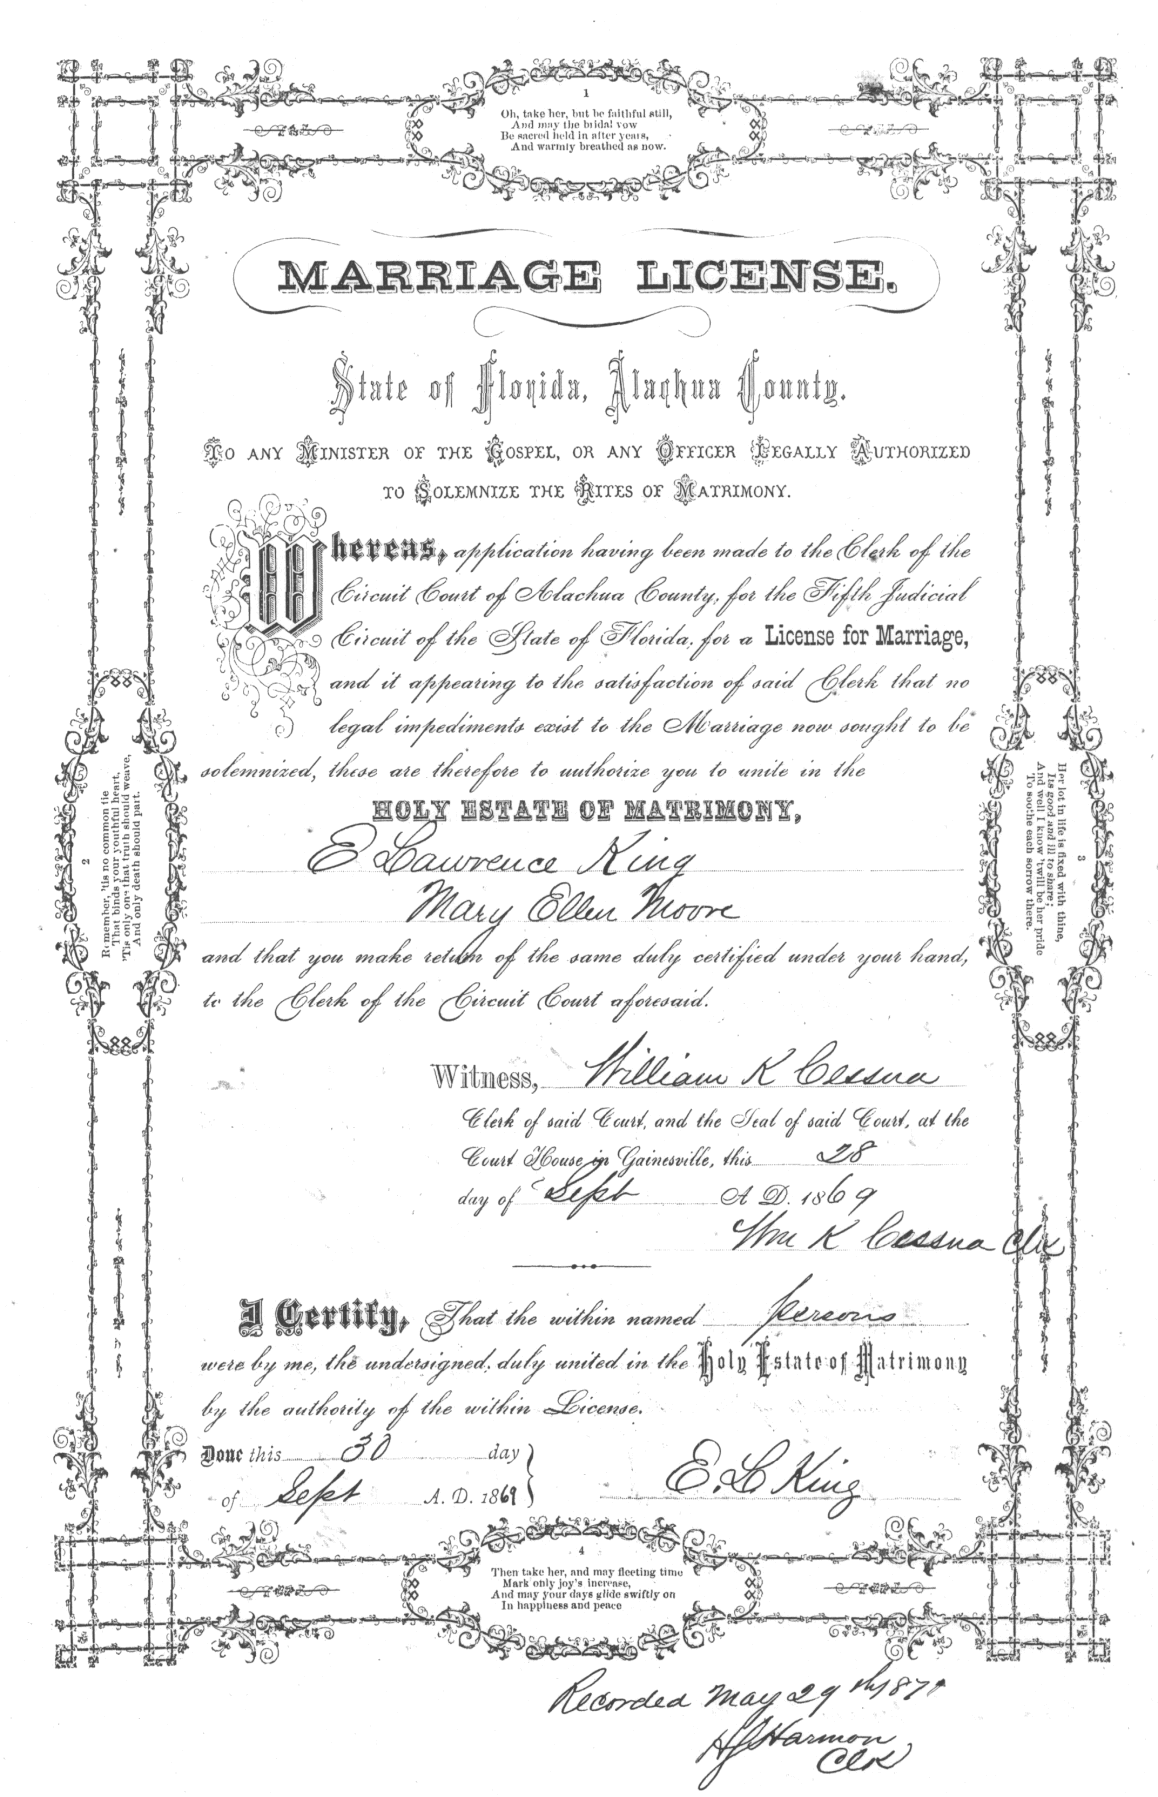 1
Oh, take her, but be faithful still,
And may the bridal vow
Be sacred held in after years,
And warmly breathed as now.
MARRIAGE LICENSE.
State of Florida, Alachua County.
To any Minister of the Gospel, or any Officer Legally Authorized
to Solemnize the Rites of Matrimony.
Whereas, application having been made to the Clerk of the
Circuit Court of Alachua County, for the Fifth Judicial
Circuit of the State of Florida, for a License for Marriage,
and it appearing to the satisfaction of said Clerk that no
legal impediments exist to the Marriage now sought to be
solemnized, these are therefore to authorize you to unite in the
HOLY ESTATE OF MATRIMONY,
E Lawrence King
Mary Ellen Moore
and that you make return of the same duly certified under your hand,
to the Clerk of the Circuit Court aforesaid.
2
Remember, 'tis no common tie
That binds your youthful heart,
'Tis only one that truth should weave,
And only death should part.
3
Her lot in life is fixed with thine,
Its good and ill to share;
And well I know 'twill be her pride
To soothe each sorrow there.
Witness, William K Cessna
Clerk of said Court, and the Seal of said Court, at the
Court House in Gainesville, this 28
day of Sept A. D. 1869
Wm K Cessna Clk
I Certify, That the within named persons
were by me, the undersigned, duly united in the Holy Estate of Matrimony
by the authority of the within License.
Done this 30 day
of Sept A. D. 1869
E. L King
4
Then take her, and may fleeting time
Mark only joy's increase,
And may your days glide swiftly on
In happiness and peace
Recorded May 29th 1871
HJ Harmon
Clk